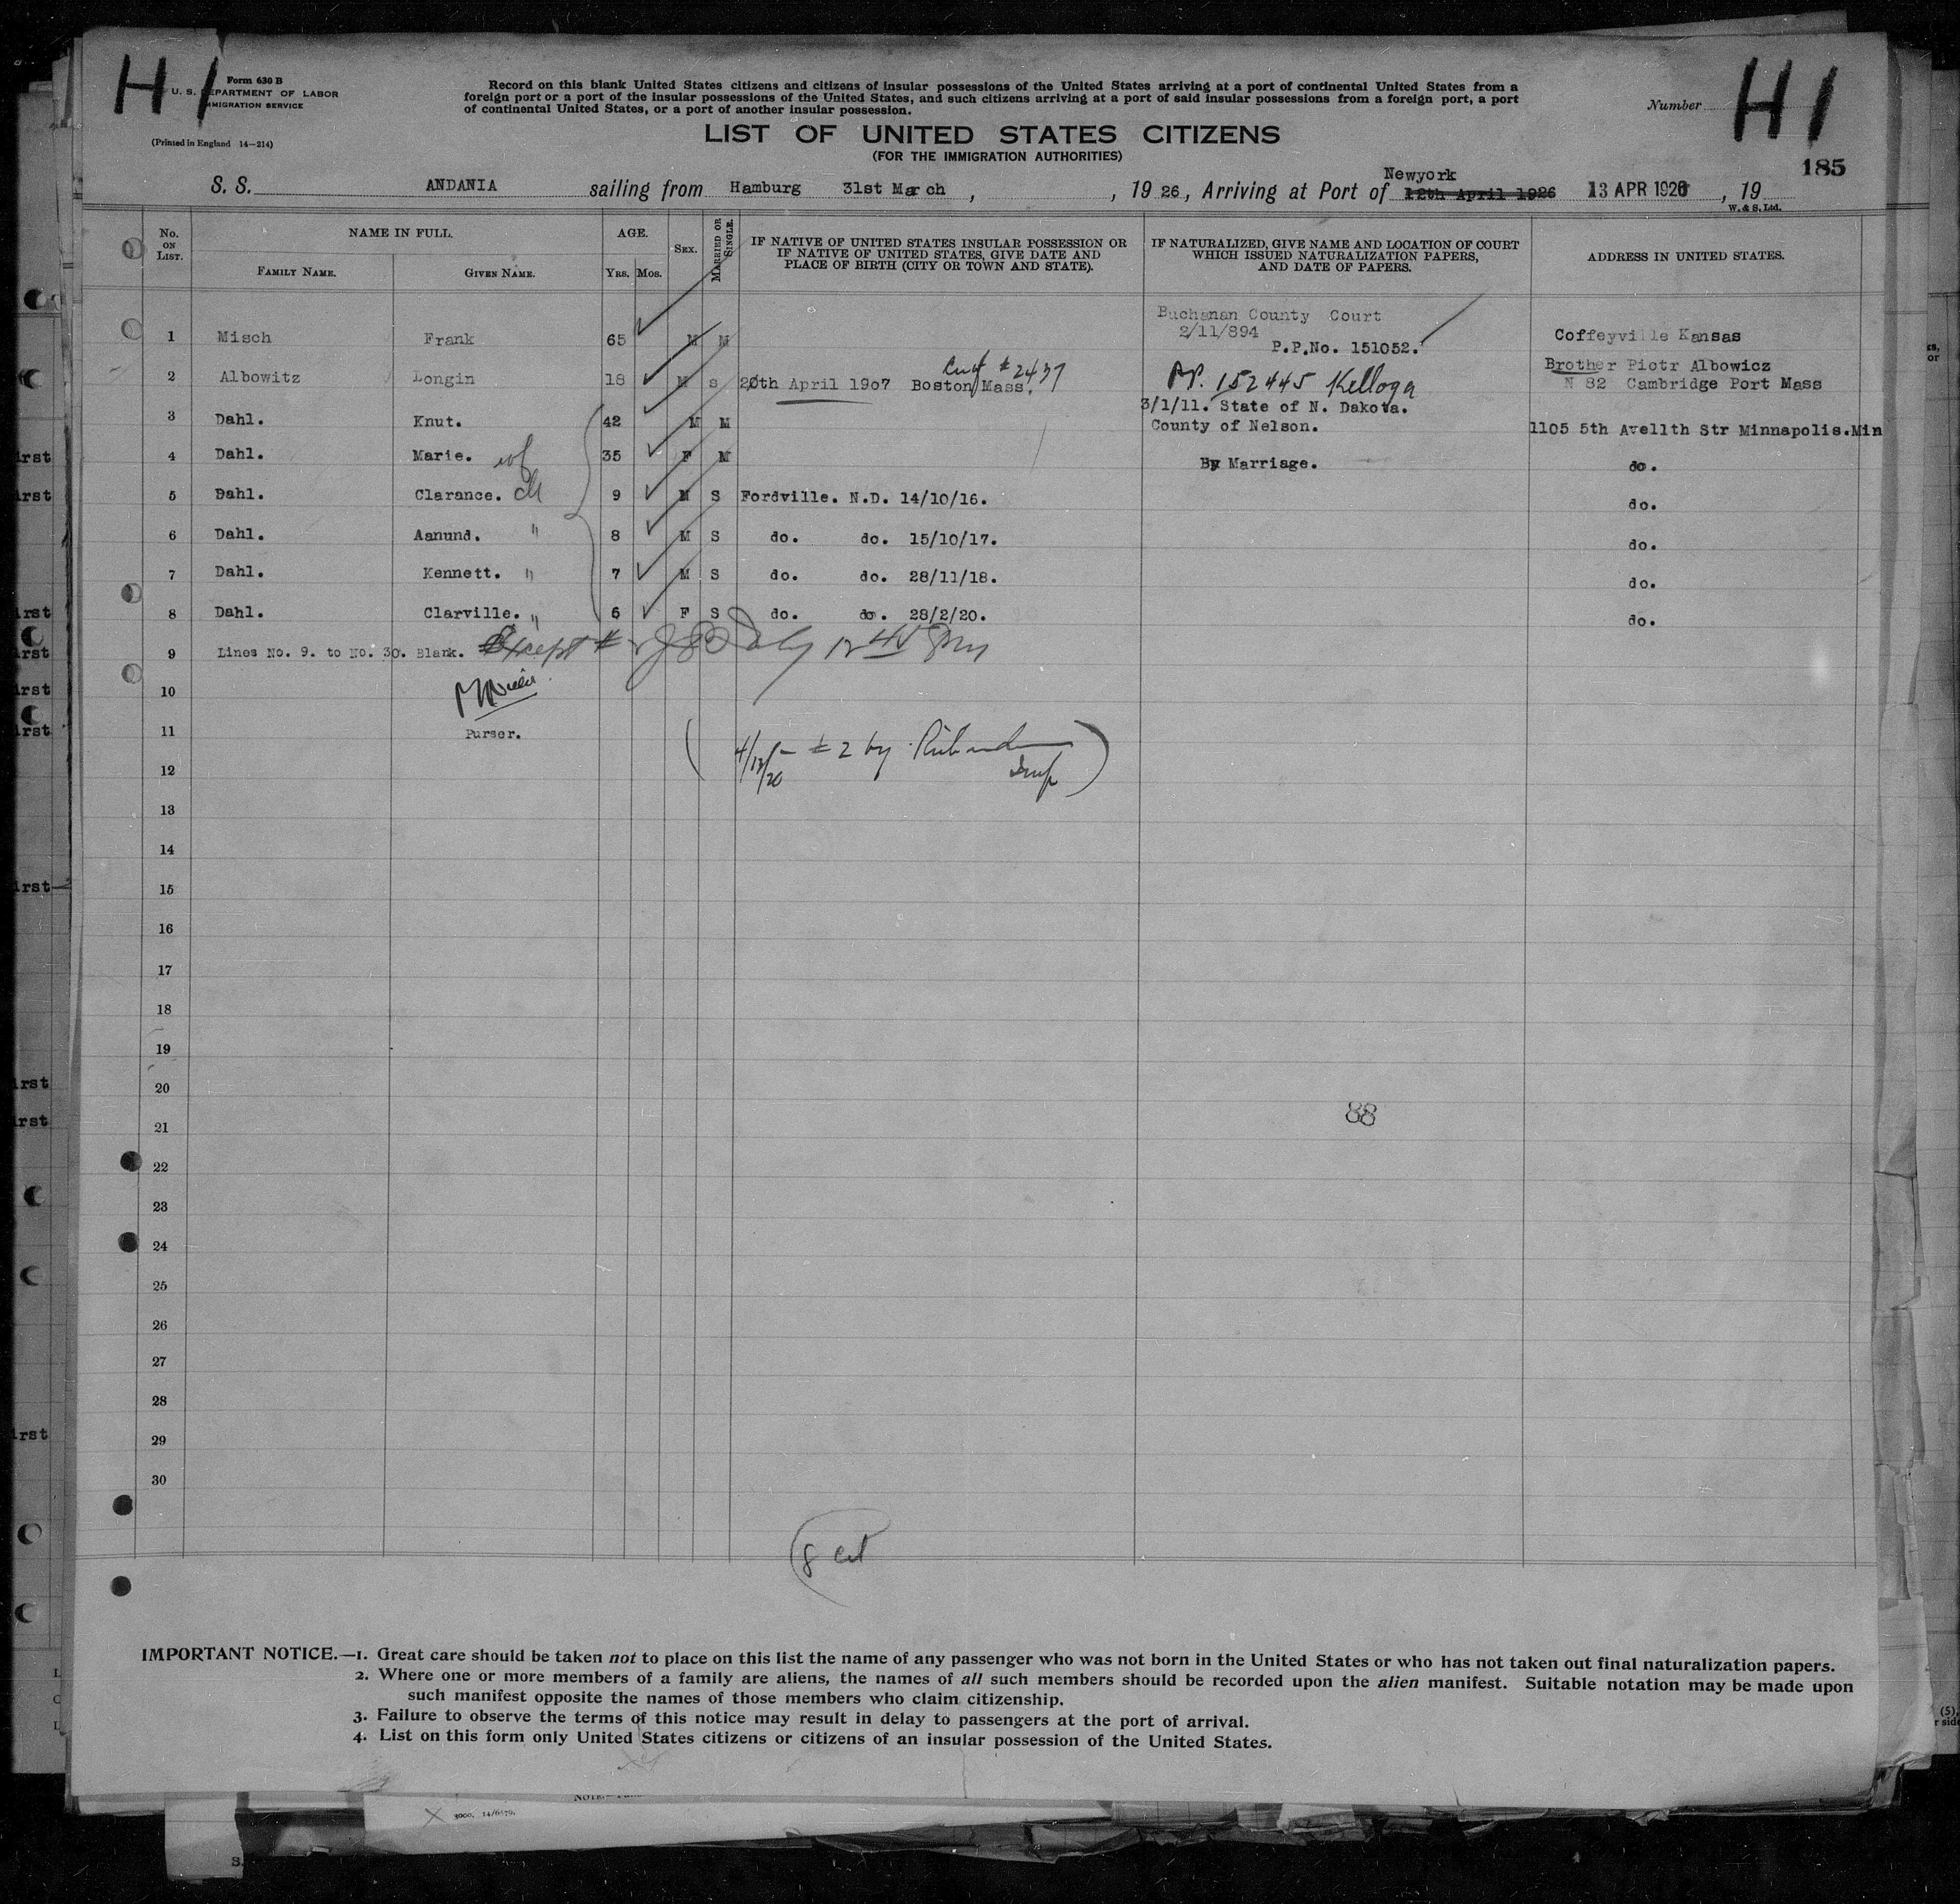 H1
Form 630 B
U. S. DEPARTMENT OF LABOR
IMMIGRATION SERVICE
(Printed in England 14—214)
Record on this blank United States citizens and citizens of insular possessions of the United States arriving at a port of continental United States from a
foreign port or a port of the insular possessions of the United States, and such citizens arriving at a port of said insular possessions from a foreign port, a port
of continental United States, or a port of another insular possession.
LIST OF UNITED STATES CITIZENS
(FOR THE IMMIGRATION AUTHORITIES)
Number H1
185
S. S. ANDANIA sailing from Hamburg 31st March , , 19 26, Arriving at Port of Newyork 12th April 1926 13 APR 1926 , 19
W. & S. Ltd.
No. ON LIST. NAME IN FULL. AGE. SEX. MARRIED OR SINGLE. IF NATIVE OF UNITED STATES INSULAR POSSESSION OR IF NATIVE OF UNITED STATES, GIVE DATE AND PLACE OF BIRTH (CITY OR TOWN AND STATE). IF NATURALIZED, GIVE NAME AND LOCATION OF COURT WHICH ISSUED NATURALIZATION PAPERS, AND DATE OF PAPERS. ADDRESS IN UNITED STATES.
FAMILY NAME. GIVEN NAME. YRS. MOS.
1 Misch Frank 65 M M Buchanan County Court 2/11/894 P.P.No. 151052. Coffeyville Kansas
2 Albowitz Longin 18 M S 20th April 1907 Boston Mass. #2437 PP. 152445 Kellogg Brother Piotr Albowicz N 82 Cambridge Port Mass
3 Dahl. Knut. 42 M M 3/1/11. State of N. Dakota. County of Nelson. 1105 5th Avellth Str Minnapolis.Min
4 Dahl. Marie. wf 35 F M By Marriage. do.
5 Dahl. Clarance. ch 9 M S Fordville. N.D. 14/10/16. do.
6 Dahl. Aanund. " 8 M S do. do. 15/10/17. do.
7 Dahl. Kennett. " 7 M S do. do. 28/11/18. do.
8 Dahl. Clarville. " 6 F S do. do. 28/2/20. do.
9 Lines No. 9. to No. 30. Blank. Except #
10
11 Purser.
#2 by
12
13
14
15
16
17
18
19
20
88
21
22
23
24
25
26
27
28
29
30
8 cit
IMPORTANT NOTICE.—1. Great care should be taken not to place on this list the name of any passenger who was not born in the United States or who has not taken out final naturalization papers.
2. Where one or more members of a family are aliens, the names of all such members should be recorded upon the alien manifest. Suitable notation may be made upon
such manifest opposite the names of those members who claim citizenship.
3. Failure to observe the terms of this notice may result in delay to passengers at the port of arrival.
4. List on this form only United States citizens or citizens of an insular possession of the United States.